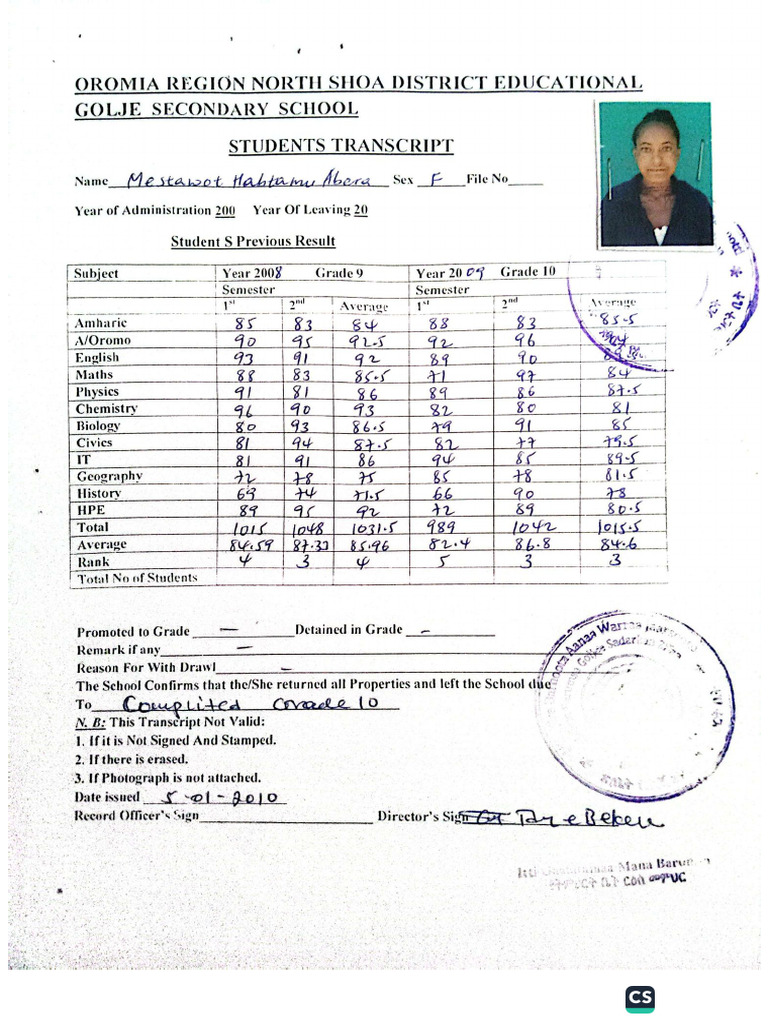 OROMIA REGION NORTH SHOA DISTRICT EDUCATIONAL
GOLJE SECONDARY SCHOOL
STUDENTS TRANSCRIPT
Name Mestawot Habtamu Abera Sex F File No
Year of Administration 200 Year Of Leaving 20
Student S Previous Result
Subject Year 2008 Grade 9 Year 20 09 Grade 10
Semester Semester
1st 2nd Average 1st 2nd Average
Amharic 85 83 84 88 83 85.5
A/Oromo 90 95 92.5 92 96
English 93 91 92 89 90
Maths 88 83 85.5 71 97 84
Physics 91 81 86 89 86 87.5
Chemistry 96 90 93 82 80 81
Biology 80 93 86.5 79 91 85
Civics 81 94 87.5 82 77 79.5
IT 81 91 86 94 85 89.5
Geography 72 78 75 85 78 81.5
History 69 74 71.5 66 90 78
HPE 89 95 92 72 89 80.5
Total 1015 1048 1031.5 989 1042 1015.5
Average 84.59 87.33 85.96 82.4 86.8 84.6
Rank 4 3 4 5 3 3
Total No of Students
Promoted to Grade — Detained in Grade -
Remark if any —
Reason For With Drawl -
The School Confirms that the/She returned all Properties and left the School due
To Complited Grade 10
N. B: This Transcript Not Valid:
1. If it is Not Signed And Stamped.
2. If there is erased.
3. If Photograph is not attached.
Date issued 5-01-2010
Record Officer's Sign Director's Sign
Aanaa Warraa
Mana
ርዕሰ መምህር
CS